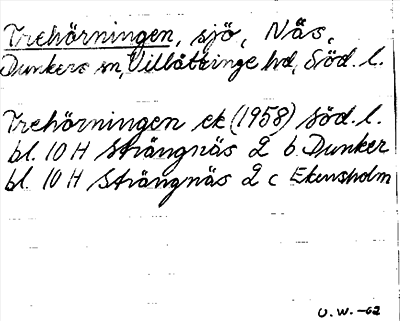 Trehörningen, sjö, Näs,
Dunkers sn, Villåttinge hd, Söd. l.
Trehörningen ek (1958) Söd. l.
bl. 10 H Strängnäs 2 b Dunker
bl. 10 H Strängnäs 2 c Ekensholm
O.W. -62